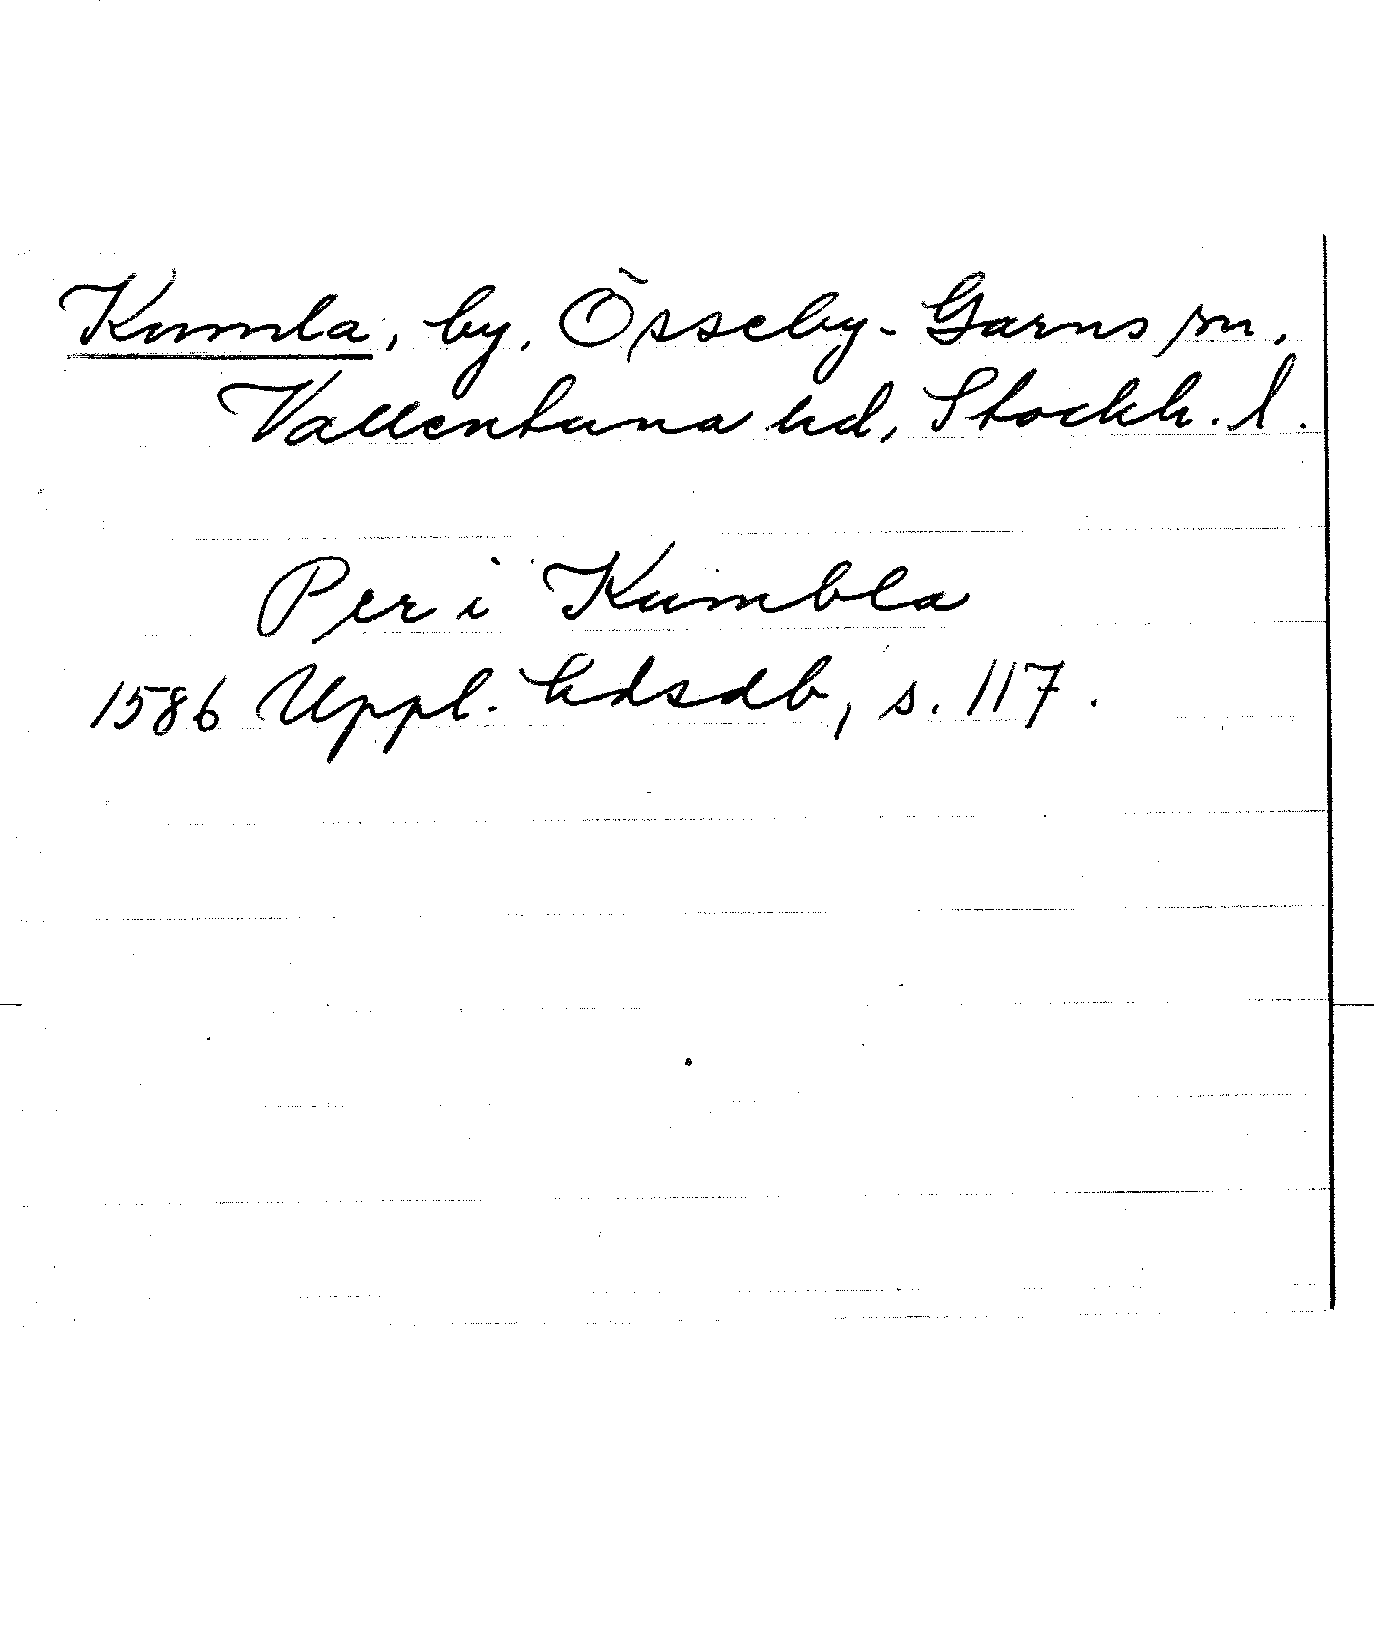 Kumla, by, Össeby-Garns sn,
Vallentuna hd, Stockh. l.
Per i Kumbla
1586 Uppl. hdsdb, s. 117.